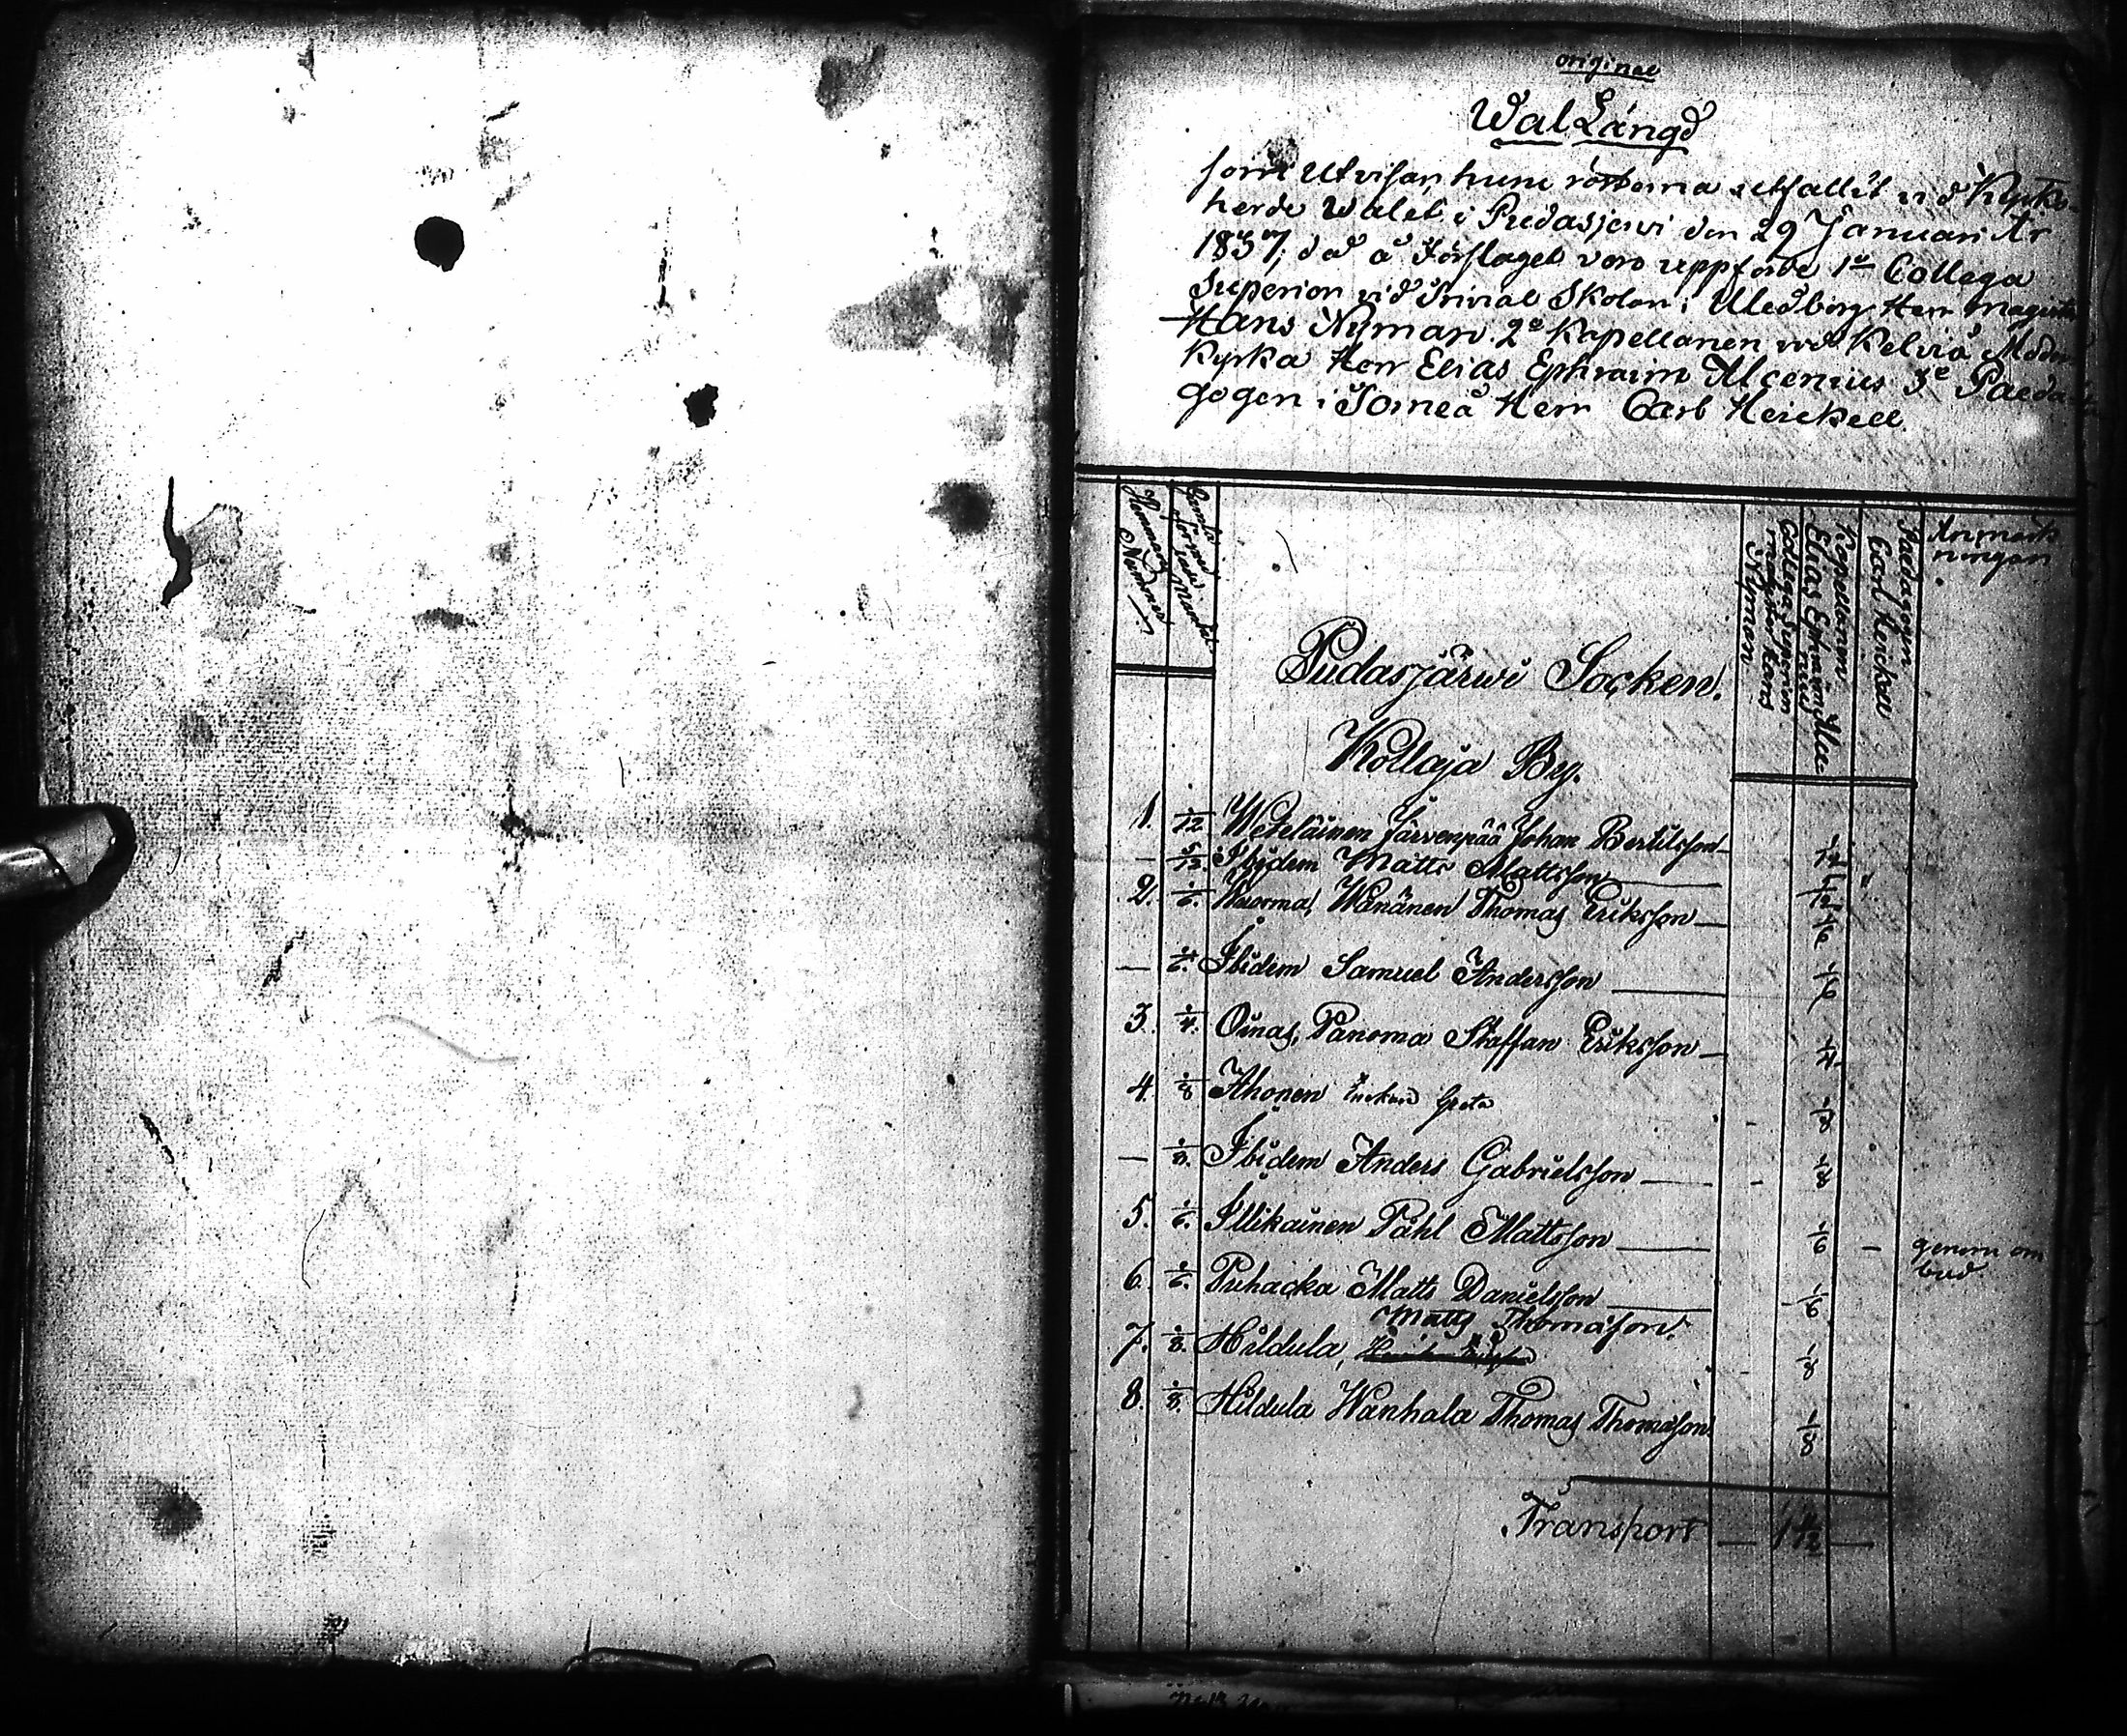 original
Wal Längd
som Utvisar, huru rösterna utfallit vid Kyrko-
herde Walet i Pudasjerwi den 29 Januari År
1837, då å Förslaget voro uppförde 1o Collega
Superior vid Trivial Skolan i Uleåborg Herr Magister
Hans Nyman. 2o Kapellanen vid Kelviå Moder
Kyrka Herr Elias Ephraim Alcenius 3o Paeda-
gogen i Torneå Herr Carl Heickell.
Hemmans Nummer
Gamla förmedlade Mantal
Collega Superior
Magister Hans
Nyman
Kapellanen
Elias Ephraim Alce-
nius
Paedagogen
Carl Heickell
Anmärk-
ningar
Pudasjärwi Socken.
Kollaja By.
1. 1/12 Weteläinen Järvenpää Johan Bertilsson 1/12
— 5/12. Ibidem Matts Mattsson 5/12
2. 1/6. Kuorma, Wänänen Thomas Eriksson 1/6
— 1/6. Ibidem Samuel Andersson 1/6
3. 1/4. Oinas, Panoma Staffan Eriksson 1/4
4. 1/8 Ahonen Enkan Greta 1/8
— 1/8. Ibidem Anders Gabrielsson 1/8
5. 1/6. Illikainen Påhl Mattsson 1/6 — genom om
bud
6. 1/6. Puhacka Matts Danielsson 1/6
Matts Thomasson.
7. 1/8. Hildula, 1/8
8. 1/8. Hildula Wanhala Thomas Thomasson 1/8
Transport — 1 11/12 —